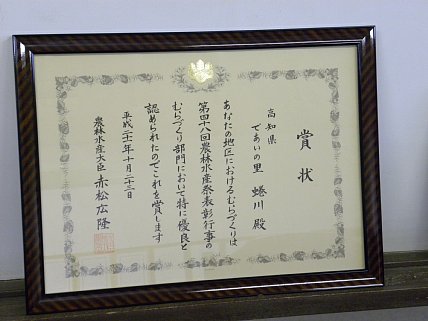 賞状
高知県
であいの里 蜷川殿
あなたの地区におけるむらづくりは
第四十八回農林水産祭表彰行事の
むらづくり部門において特に優良と
認められたのでこれを賞します
平成二十一年十月二十三日
農林水産大臣 赤松広隆